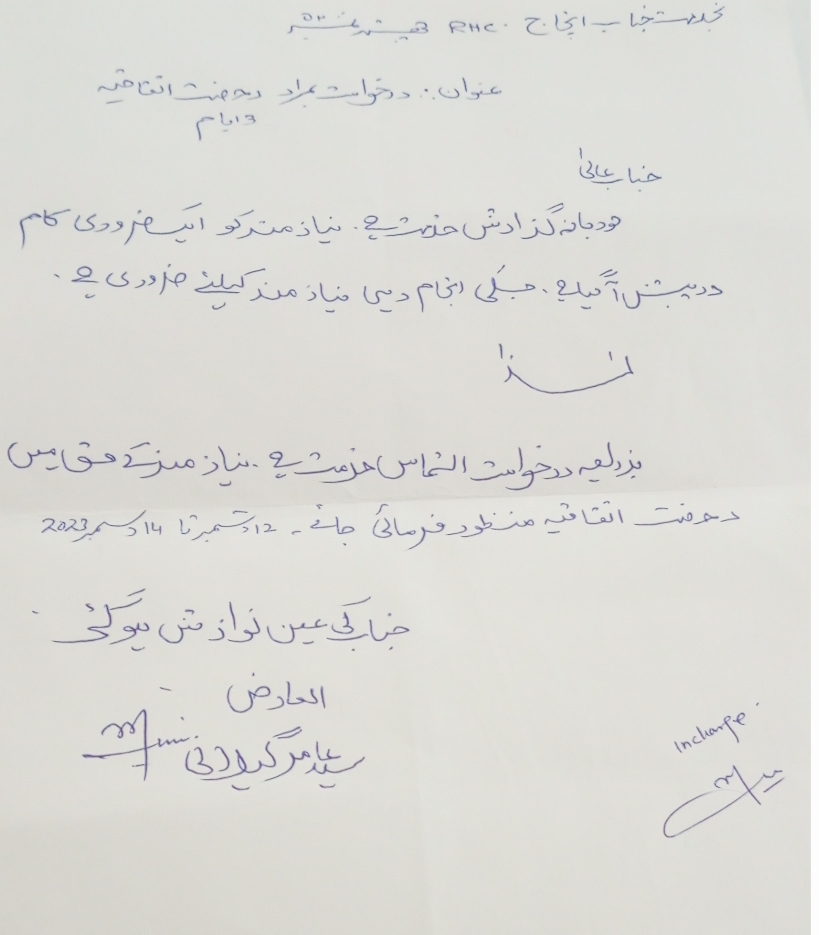 بخدمت جناب انچارج RHC
عنوان:۔ درخواست بمراد رخصت اتفاقیہ
3 ایام
جناب عالیٰ
مودبانہ گزارش خدمت ہے۔ نیاز مند کو ایک ضروری کام
درپیش آگیا ہے۔ جسکی انجام دہی نیاز مند کیلئے ضروری ہے۔
لہذا
بذریعہ درخواست التماس خدمت ہے۔ نیاز مند کے حق میں
رخصت اتفاقیہ منظور فرمائی جائے۔ 12 دسمبر تا 14 دسمبر 2023
جناب کی عین نوازش ہوگئی۔
العارض
سید عامر گیلانی
Incharge